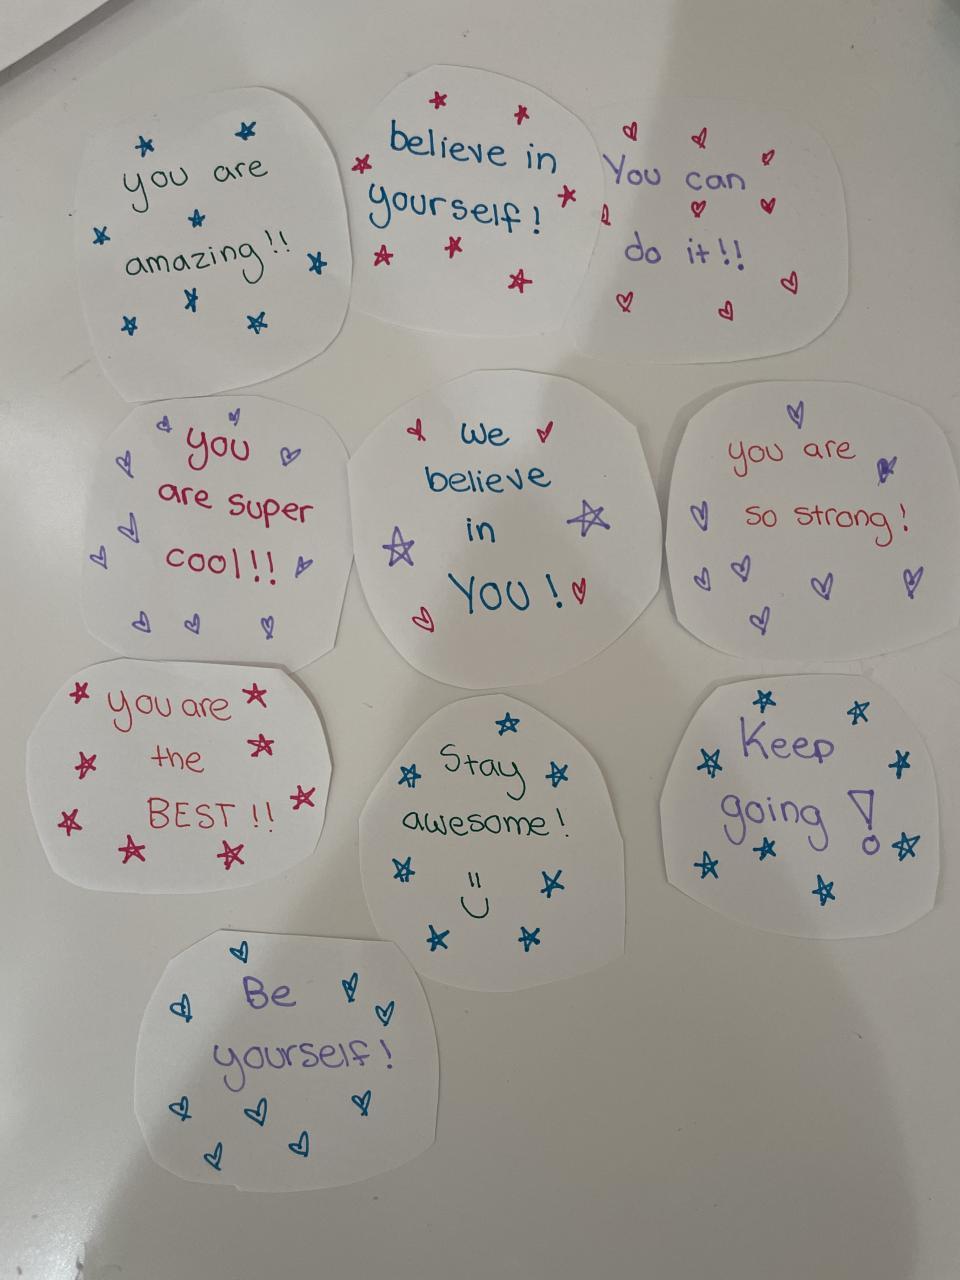 you are
amazing!!
believe in
yourself!
You can
do it!!
you
are super
cool!!
we
believe
in
YOU!
you are
so strong!
you are
the
BEST!!
Stay
awesome!
Keep
going!
Be
yourself!